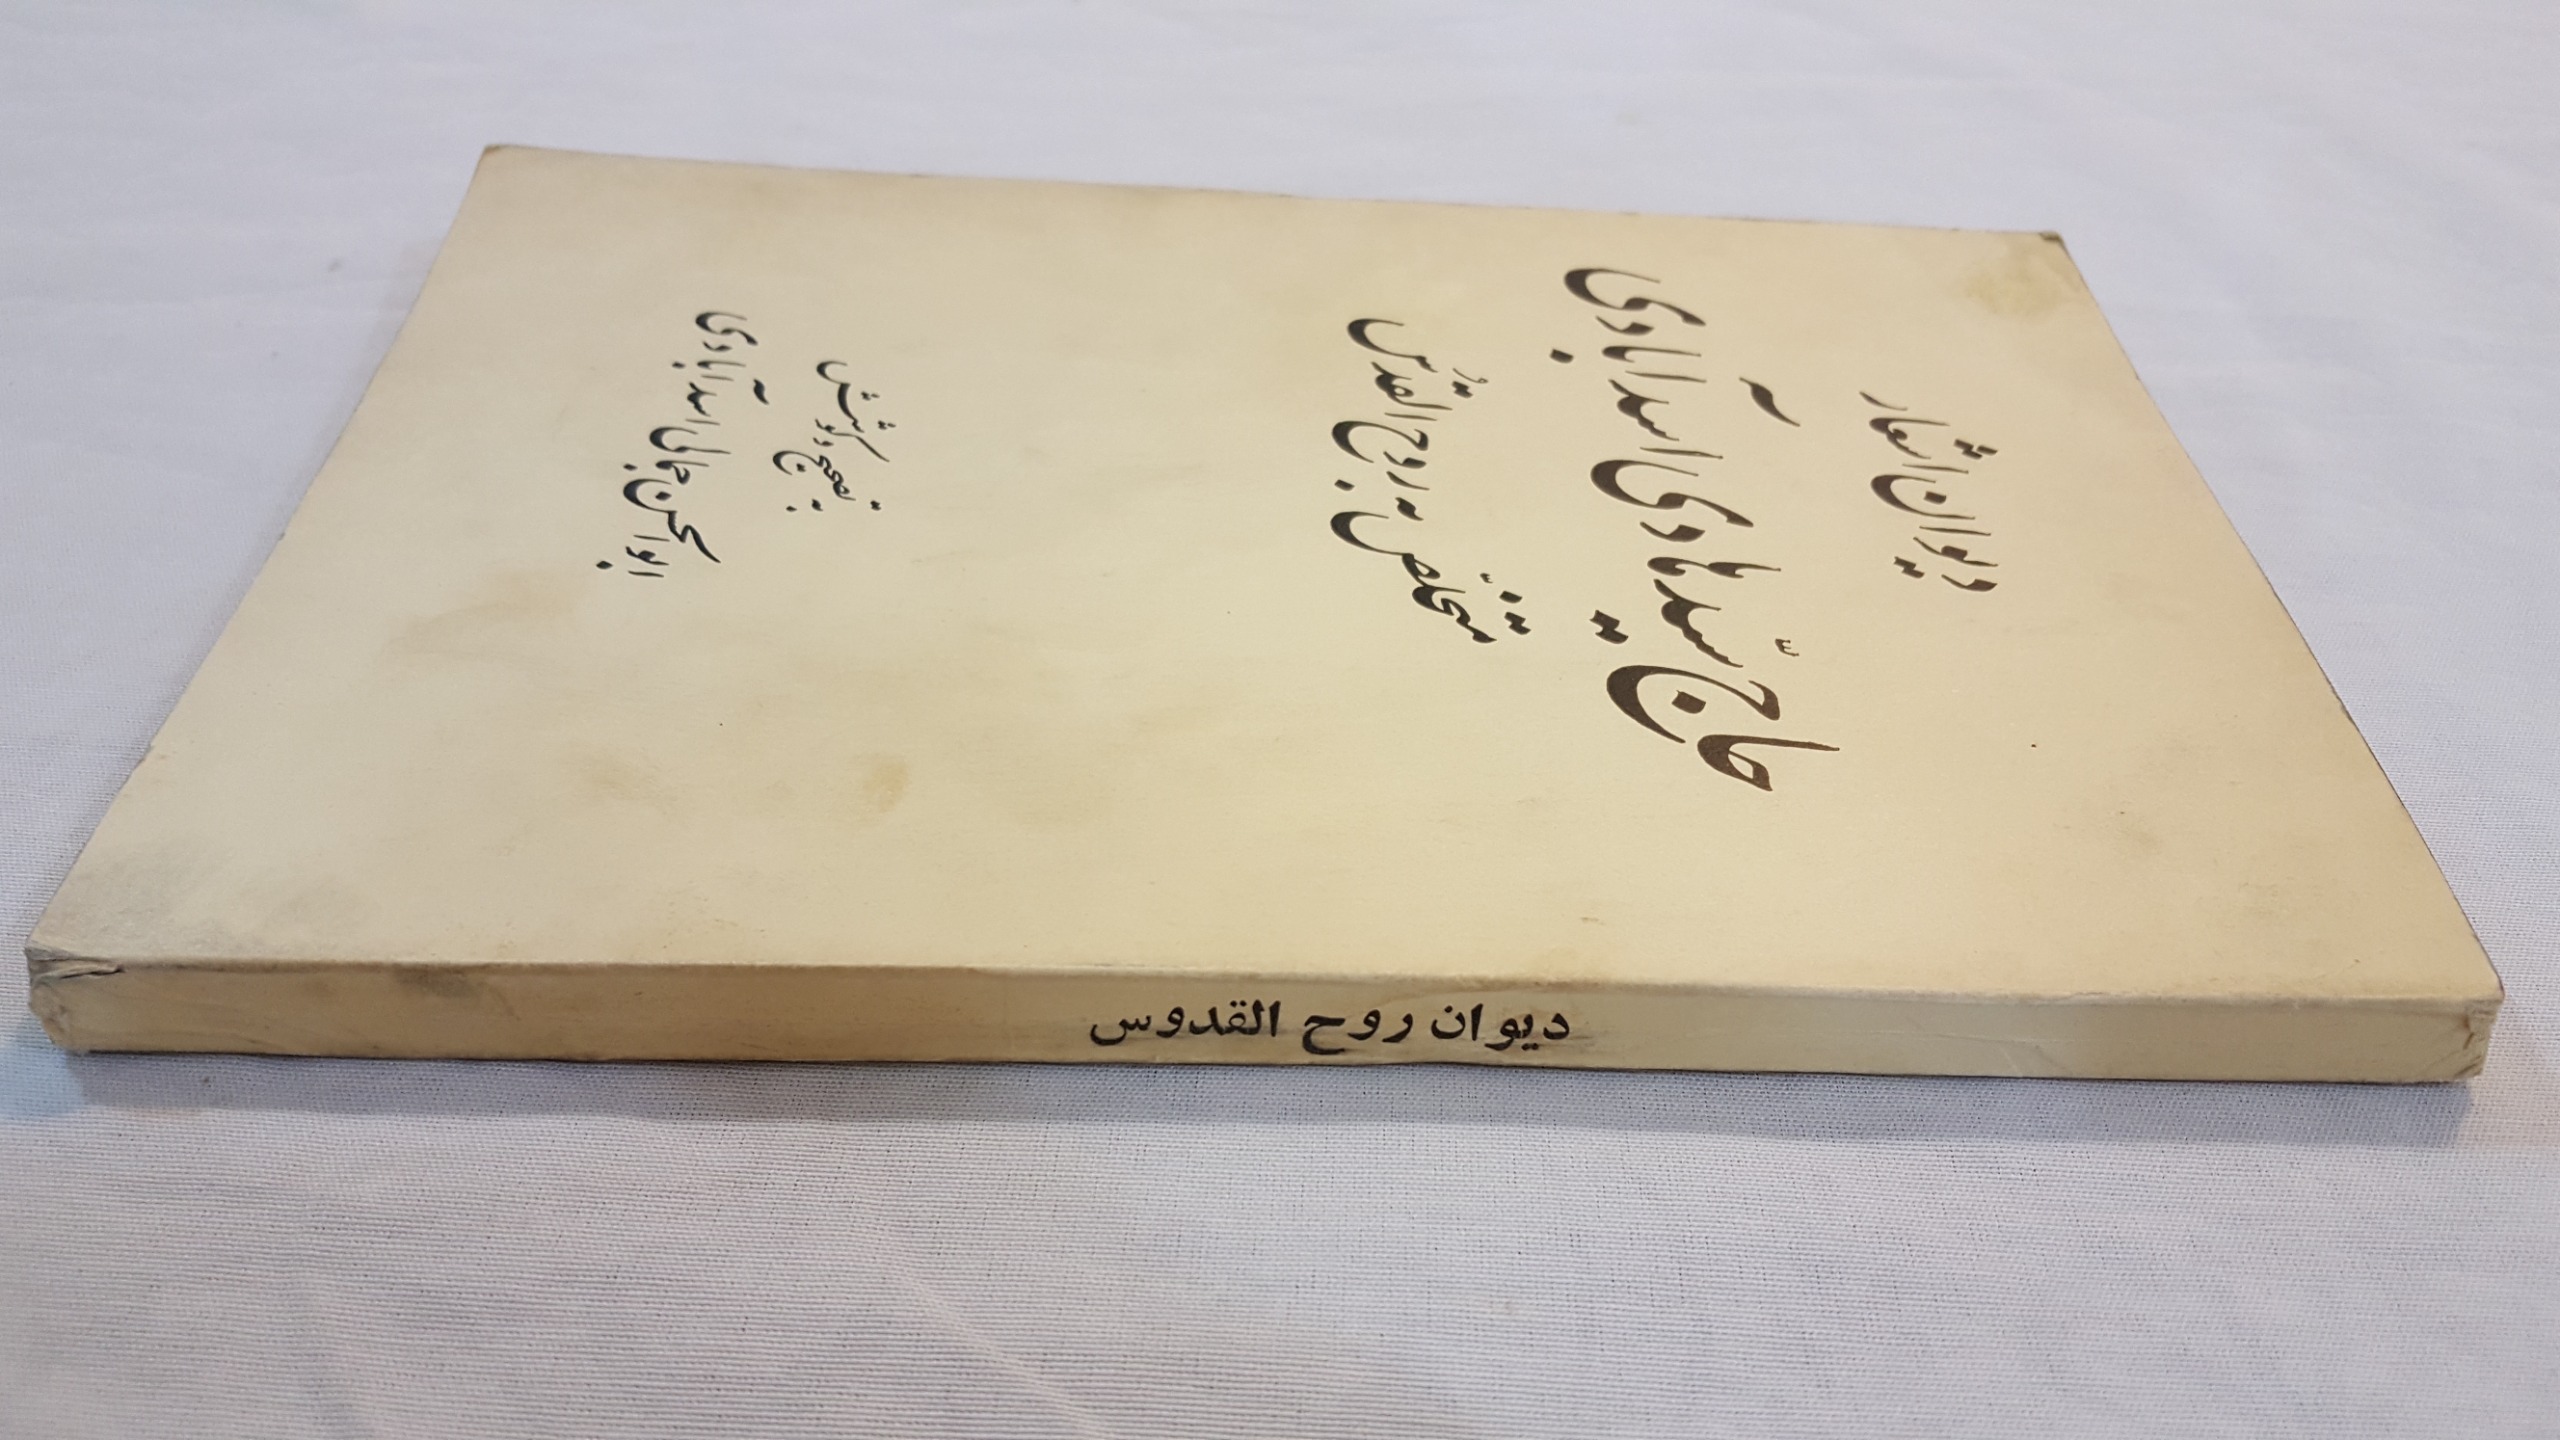 دیوان اشعار
حاج سیّد هادی اسدآبادی
متخلّص به روح القدس
به تصحیح و کوشش
ابوالحسن جمالی اسدآبادی
دیوان روح القدوس